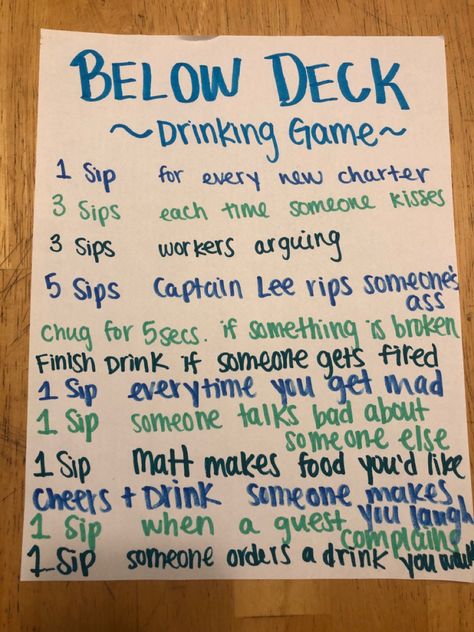 BELOW DECK
~Drinking Game~
1 Sip for every new charter
3 Sips each time someone kisses
3 Sips workers arguing
5 Sips Captain Lee rips someone's
ass
chug for 5secs. if something is broken
Finish Drink if someone gets fired
1 Sip everytime you get mad
1 Sip someone talks bad about
someone else
1 Sip Matt makes food you'd like
cheers + Drink someone makes
you laugh
1 Sip when a guest complains
1 Sip someone orders a drink you